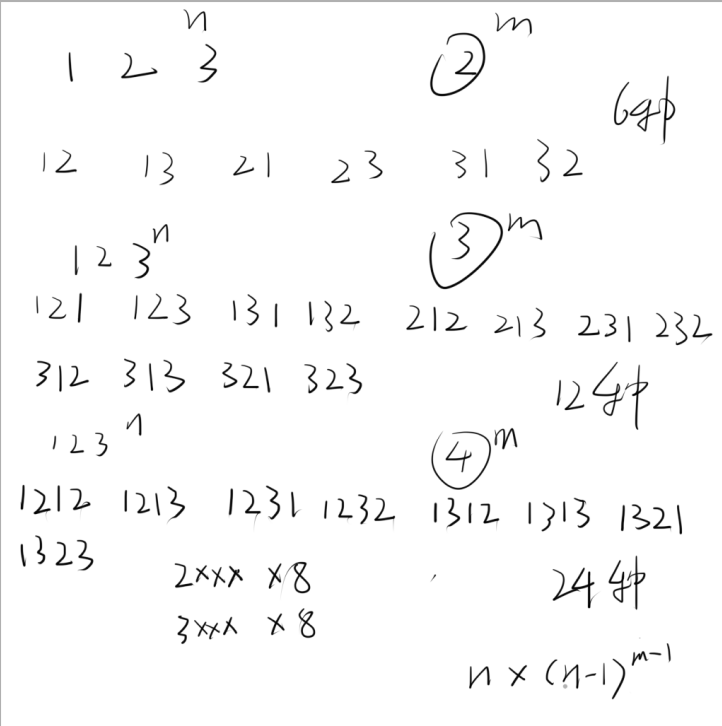 1 2 3 n ② m
6种
12 13 21 23 31 32
1 2 3 n ③ m
121 123 131 132 212 213 231 232
312 313 321 323 12种
1 2 3 n ④ m
1212 1213 1231 1232 1312 1313 1321
1323
2xxx x8 24种
3xxx x8
n × (n-1)^{m-1}